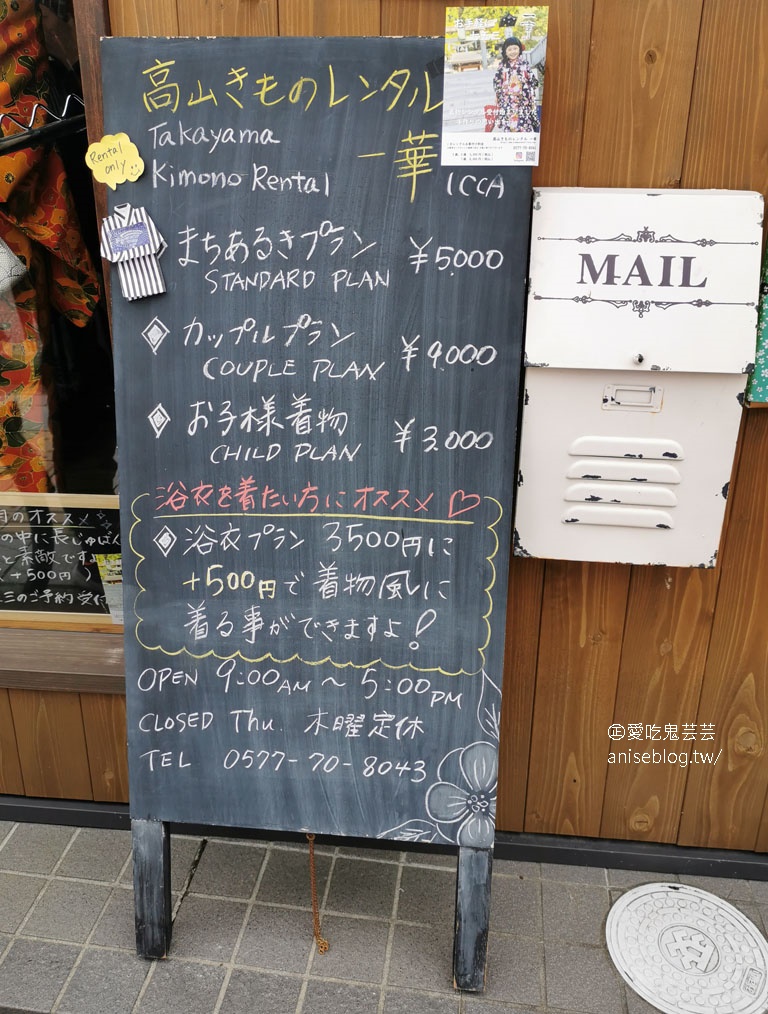 高山きものレンタル
Takayama
一華
Kimono Rental
ICCA
Rental only
まちあるきプラン ¥5.000
STANDARD PLAN
カップルプラン ¥9.000
COUPLE PLAN
お子様着物 ¥3.000
CHILD PLAN
浴衣を着たい方にオススメ♡
浴衣プラン 3500円に
+500円で着物風に
着る事ができますよ!
OPEN 9:00AM ~ 5:00PM
CLOSED Thu. 木曜定休
TEL 0577-70-8043
MAIL
お手軽に
高山きものレンタル 一華
月のオススメ
の中に長じゅばん
と素敵ですよ
(+500円)
のご予約受付
愛吃鬼芸芸
aniseblog.tw/